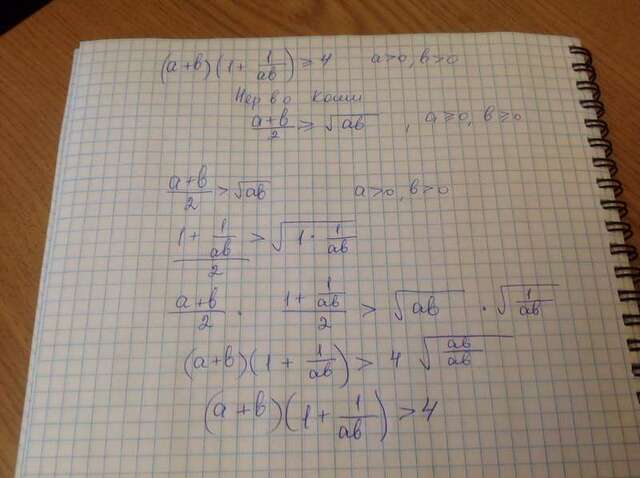 (a+b)(1+ 1/ab) ≥ 4 a>0, b>0
Нер во Коши
a+b/2 ≥ √ab , a≥0, b≥0
a+b/2 > √ab a>0, b>0
1+ 1/ab/2 > √1· 1/ab
a+b/2 · 1+ 1/ab/2 > √ab · √1/ab
(a+b)(1+ 1/ab) > 4 √ab/ab
(a+b)(1+ 1/ab) > 4